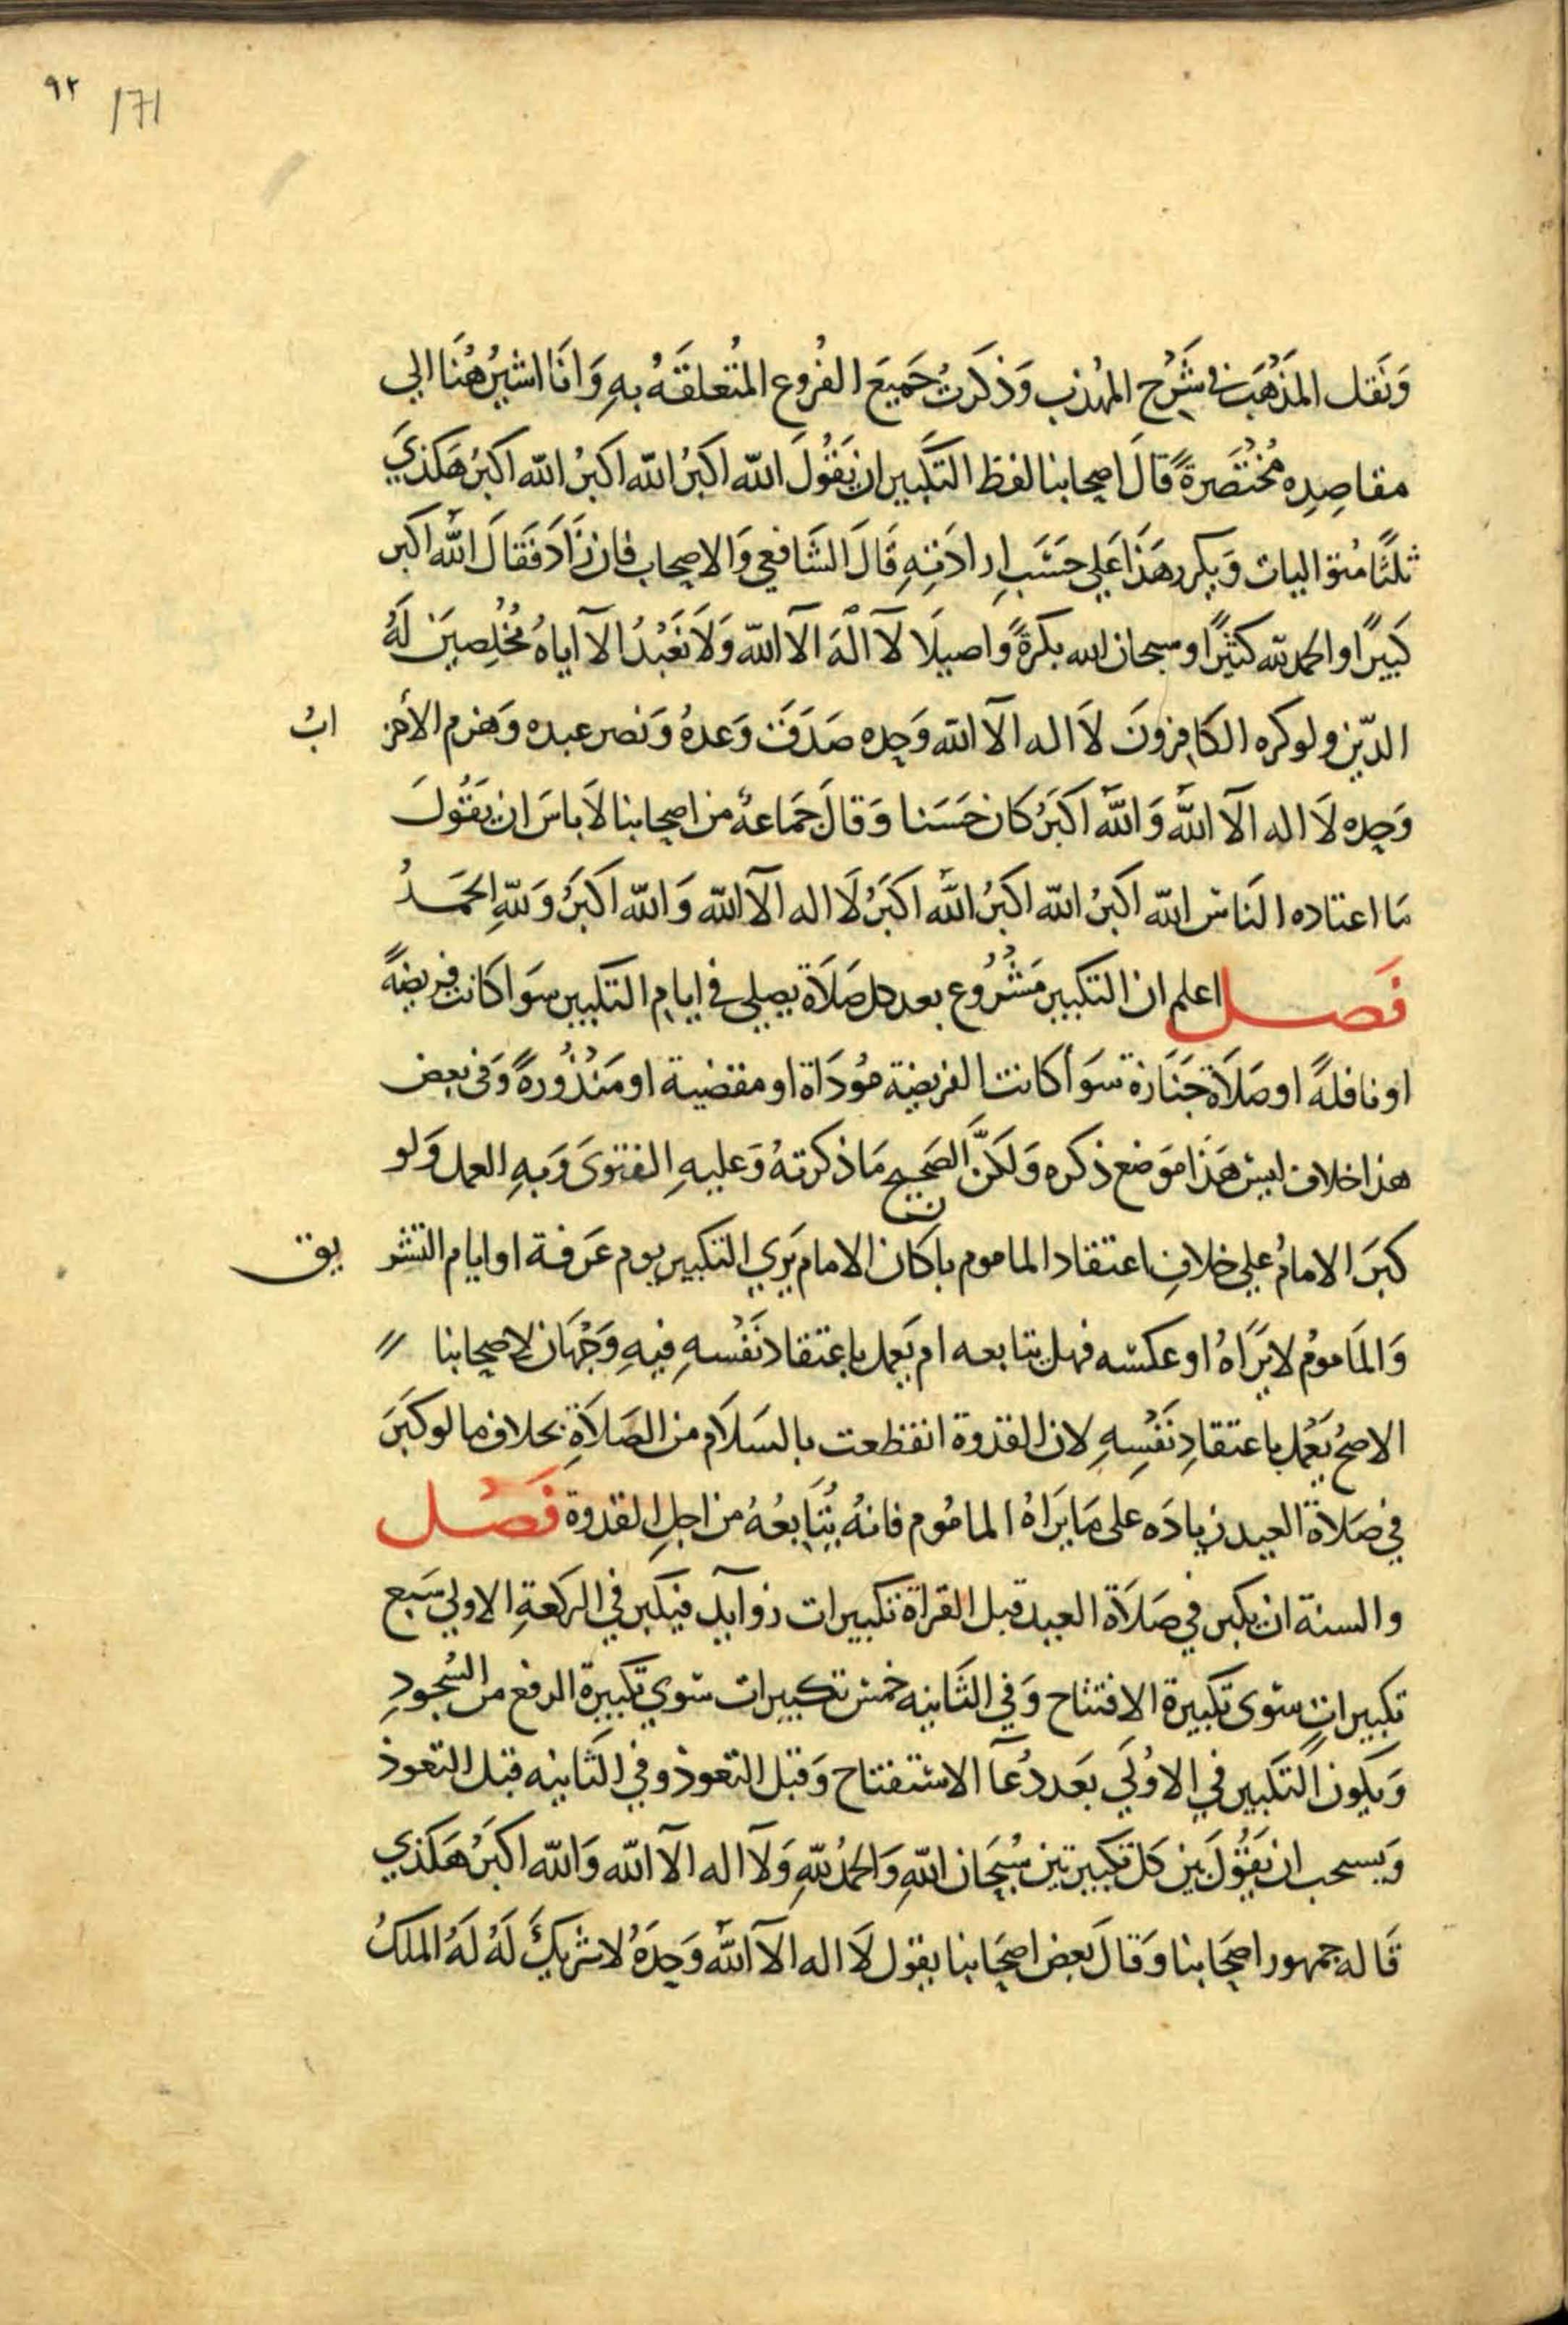 ٩٢
171
وَنَقل المَذْهَب في شَرْح المهُذب وَذكَرتُ جَميعَ الفُروع المُتعلقَهُ بهِ وَانَا اشيرُ هُنَا الي
مقاصِدِه مُختَصَرةً قَالَ اصحابنا لفظ التكَبير ان يَقُولَ الله اكبَرُ الله اكبرُ الله اكبَرُ هَكذي
ثلثًا مُتواليات وَيكرر هَذَا عَلي حَسَبِ ارادَتهِ قَالَ الشَافعي وَالاصحاب فان زَادَ فَقَالَ الله اكبر
كَبيرًا والحمد لله كثيرًا وسبحان الله بكرةً واصيلَا لآ الَهَ الآ الله وَلاَ نَعْبُدُ الآ اياهُ مُخْلِصِينَ لَهُ
الدّين ولوكره الكَافِرونَ لاَ اله الآ الله وَحده صَدَقَ وَعدهُ وَنصر عبده وَهَزم الأحز ابُ
وَحده لَا اله الآ الله وَاللهُ اكَبَرُ كَان حَسَنا وَقالَ جَمَاعةُ من اصحابنا لاَ باسَ ان يَقُولَ
مَا اعتاده النَاسُ الله اكبَرُ الله اكبَرُ الله اكبَرُ لَا اله الآ الله وَالله اكبَرُ وَللهِ الحَمَدُ
فَصل اعلم ان التكبير مَشْرُوع بعد كل صَلَاة يصلي في ايام التكبير سَوَا كَانت فريضةً
او نافلةً او صَلَاة جَنَازة سَوَأ كانت الفريضة مُودَاة او مقضية او مَنْذُورةً وَفي بَعض
هذا خلاف ليسَ هَذَا مَوضع ذكره وَلَكنَّ الصَحيح مَا ذكرتهُ وَعليهِ الفتوىَ وَبهِ العمل وَلو
كبَرَ الامامُ علي خلافِ اعتقاد الماموم باكَان الامام يَرَي التكبير يوم عَرَفة او ايام التشر يق
وَالمَامومُ لا يَرَاهُ او عكسه فهل يتابعه ام يَعمل باعتقاد نَفْسهِ فيهِ وَجْهَان لاِصحابنا ״
الاصحُ يَعْمل باعتقادِ نَفْسِهِ لان القدوة انقطعت بالسَلَام من الصَلَاةِ بخلاف ما لو كبَرَ
في صَلاَة العيد زيادَه على مَا يَرَاهُ المامُوم فانهُ يُتَابعُهُ من اجلِ القدوة فَصْل
والسنة ان يكبر في صَلَاة العيد قبل القراة تكبيرات زوآيد فيكبر في الركعةِ الاولي سَبع
تكبيراتٍ سوى تكبيرة الافتتاح وَفي الثَانيه خمسَ تكبيرات سوي تكبيرة الرفع من السُجودِ
وَيكون التكبير في الاوُلَي بَعدَ دُعآ الاستفتاح وَقبل التعوذ وفي الثَانيه قبل التعوذ
وَيسحب ان يَقُولَ بَين كل تكبيرتين سُبحَان اللهِ وَالحمدُ للهِ وَلآ اله الآ الله وَالله اكبَرُ هَكذي
قَاله جمهور اصحَابنا وَقالَ بَعض اصحَابنا يقول لَا اله الآ الله وَحدَهُ لا شريكَ لَهُ لَهُ الملكُ